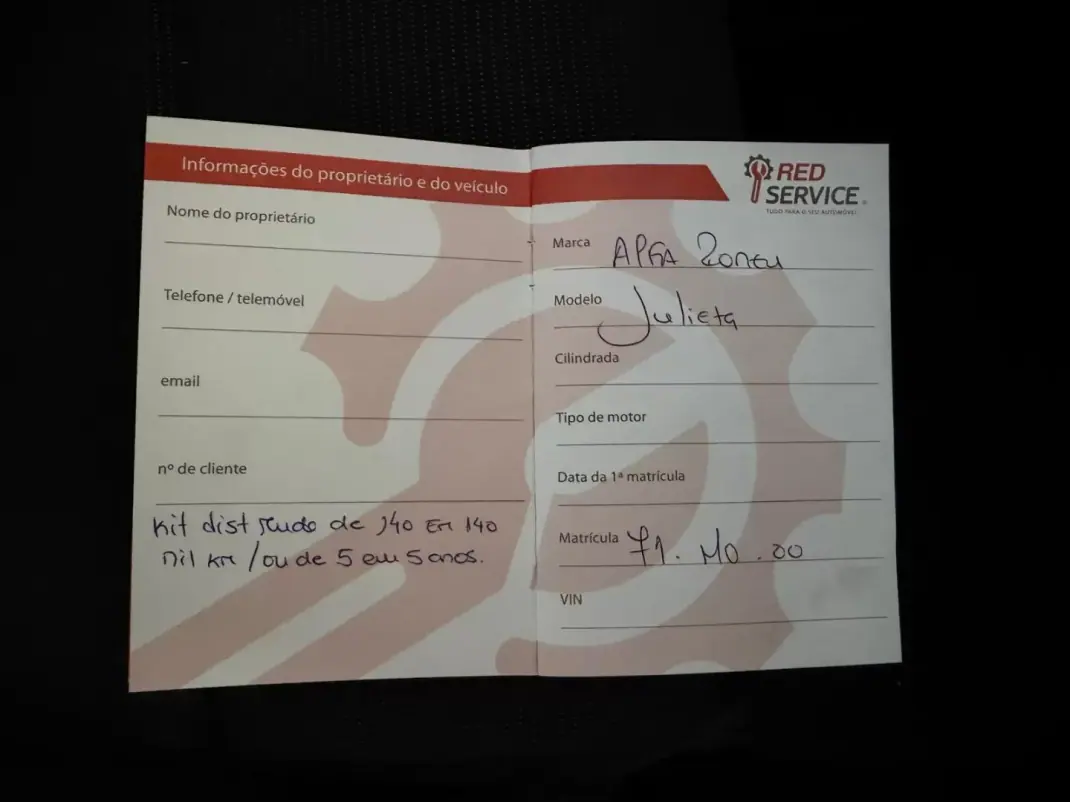 Informações do proprietário e do veículo
Nome do proprietário
Telefone / telemóvel
email
nº de cliente
Kit dist de 140 Em 140
mil km / ou de 5 em 5 anos.
RED
SERVICE
TUDO PARA O SEU AUTOMÓVEL
Marca ALFA Romeu
Modelo Julieta
Cilindrada
Tipo de motor
Data da 1ª matrícula
Matrícula 71. MO .00
VIN